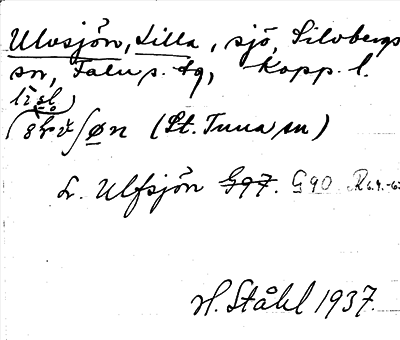 Ulvsjön, Lilla, sjö, Silvbergs
sn, Falu s. tg, Kopp. l.
(St. Tuna sn)
Lr. Ulfsjön G97. G90
H. Ståhl 1937.